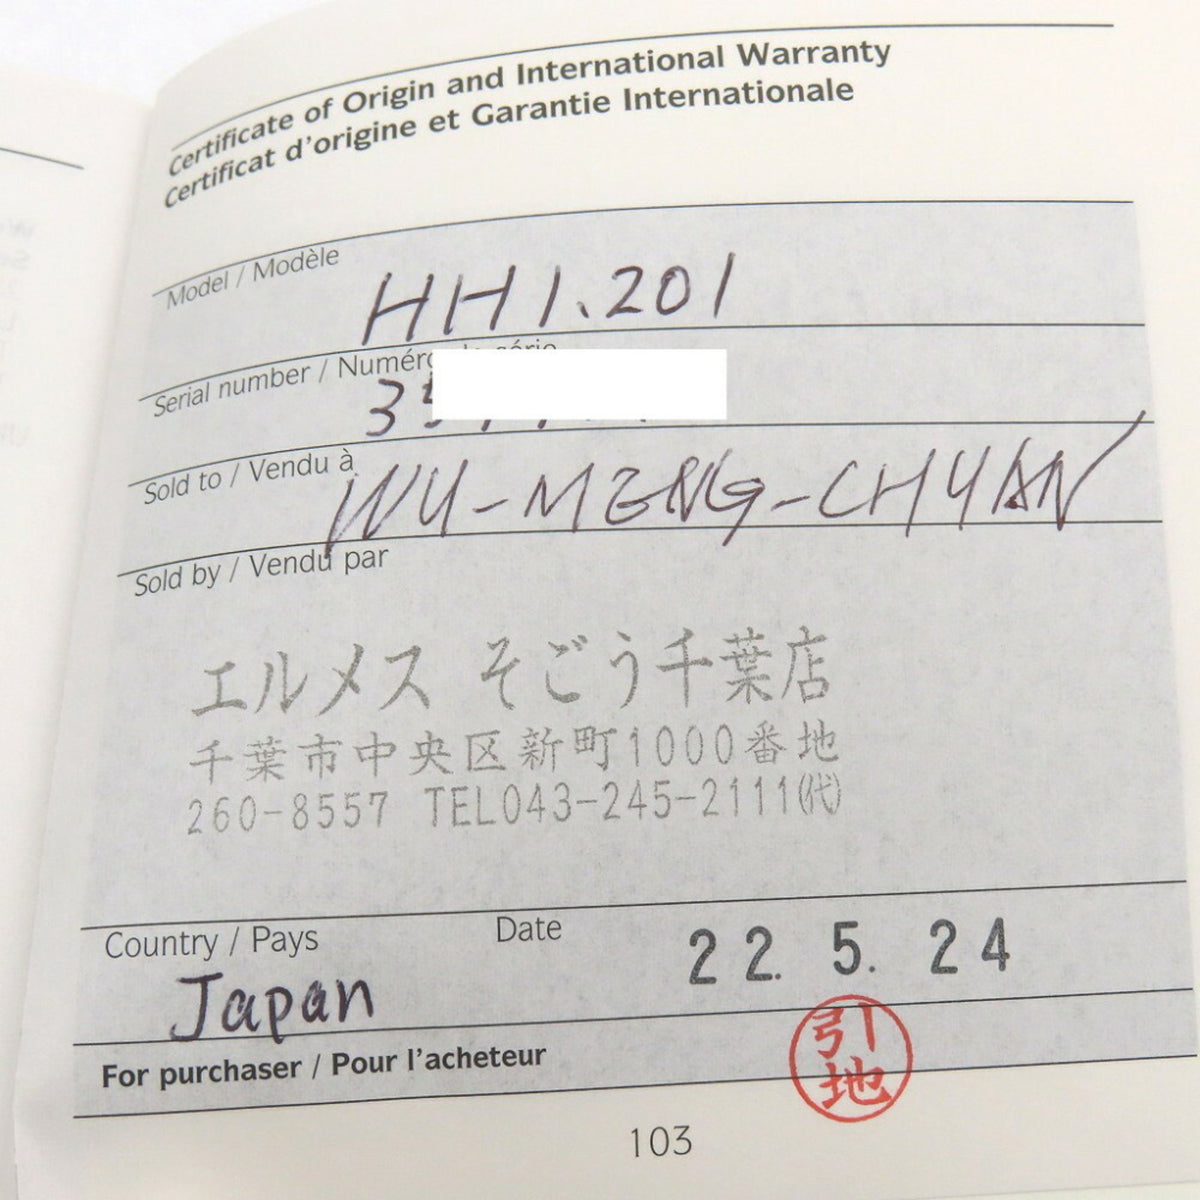 Certificate of Origin and International Warranty
Certificat d'origine et Garantie Internationale
Model / Modèle
HH1.201
Serial number / Numéro de série
35
Sold to / Vendu à
WU-MENG-CHYAN
Sold by / Vendu par
エルメス そごう千葉店
千葉市中央区新町1000番地
260-8557 TEL043-245-2111㈹
Country / Pays
Date
22. 5. 24
Japan
For purchaser / Pour l'acheteur
引地
103